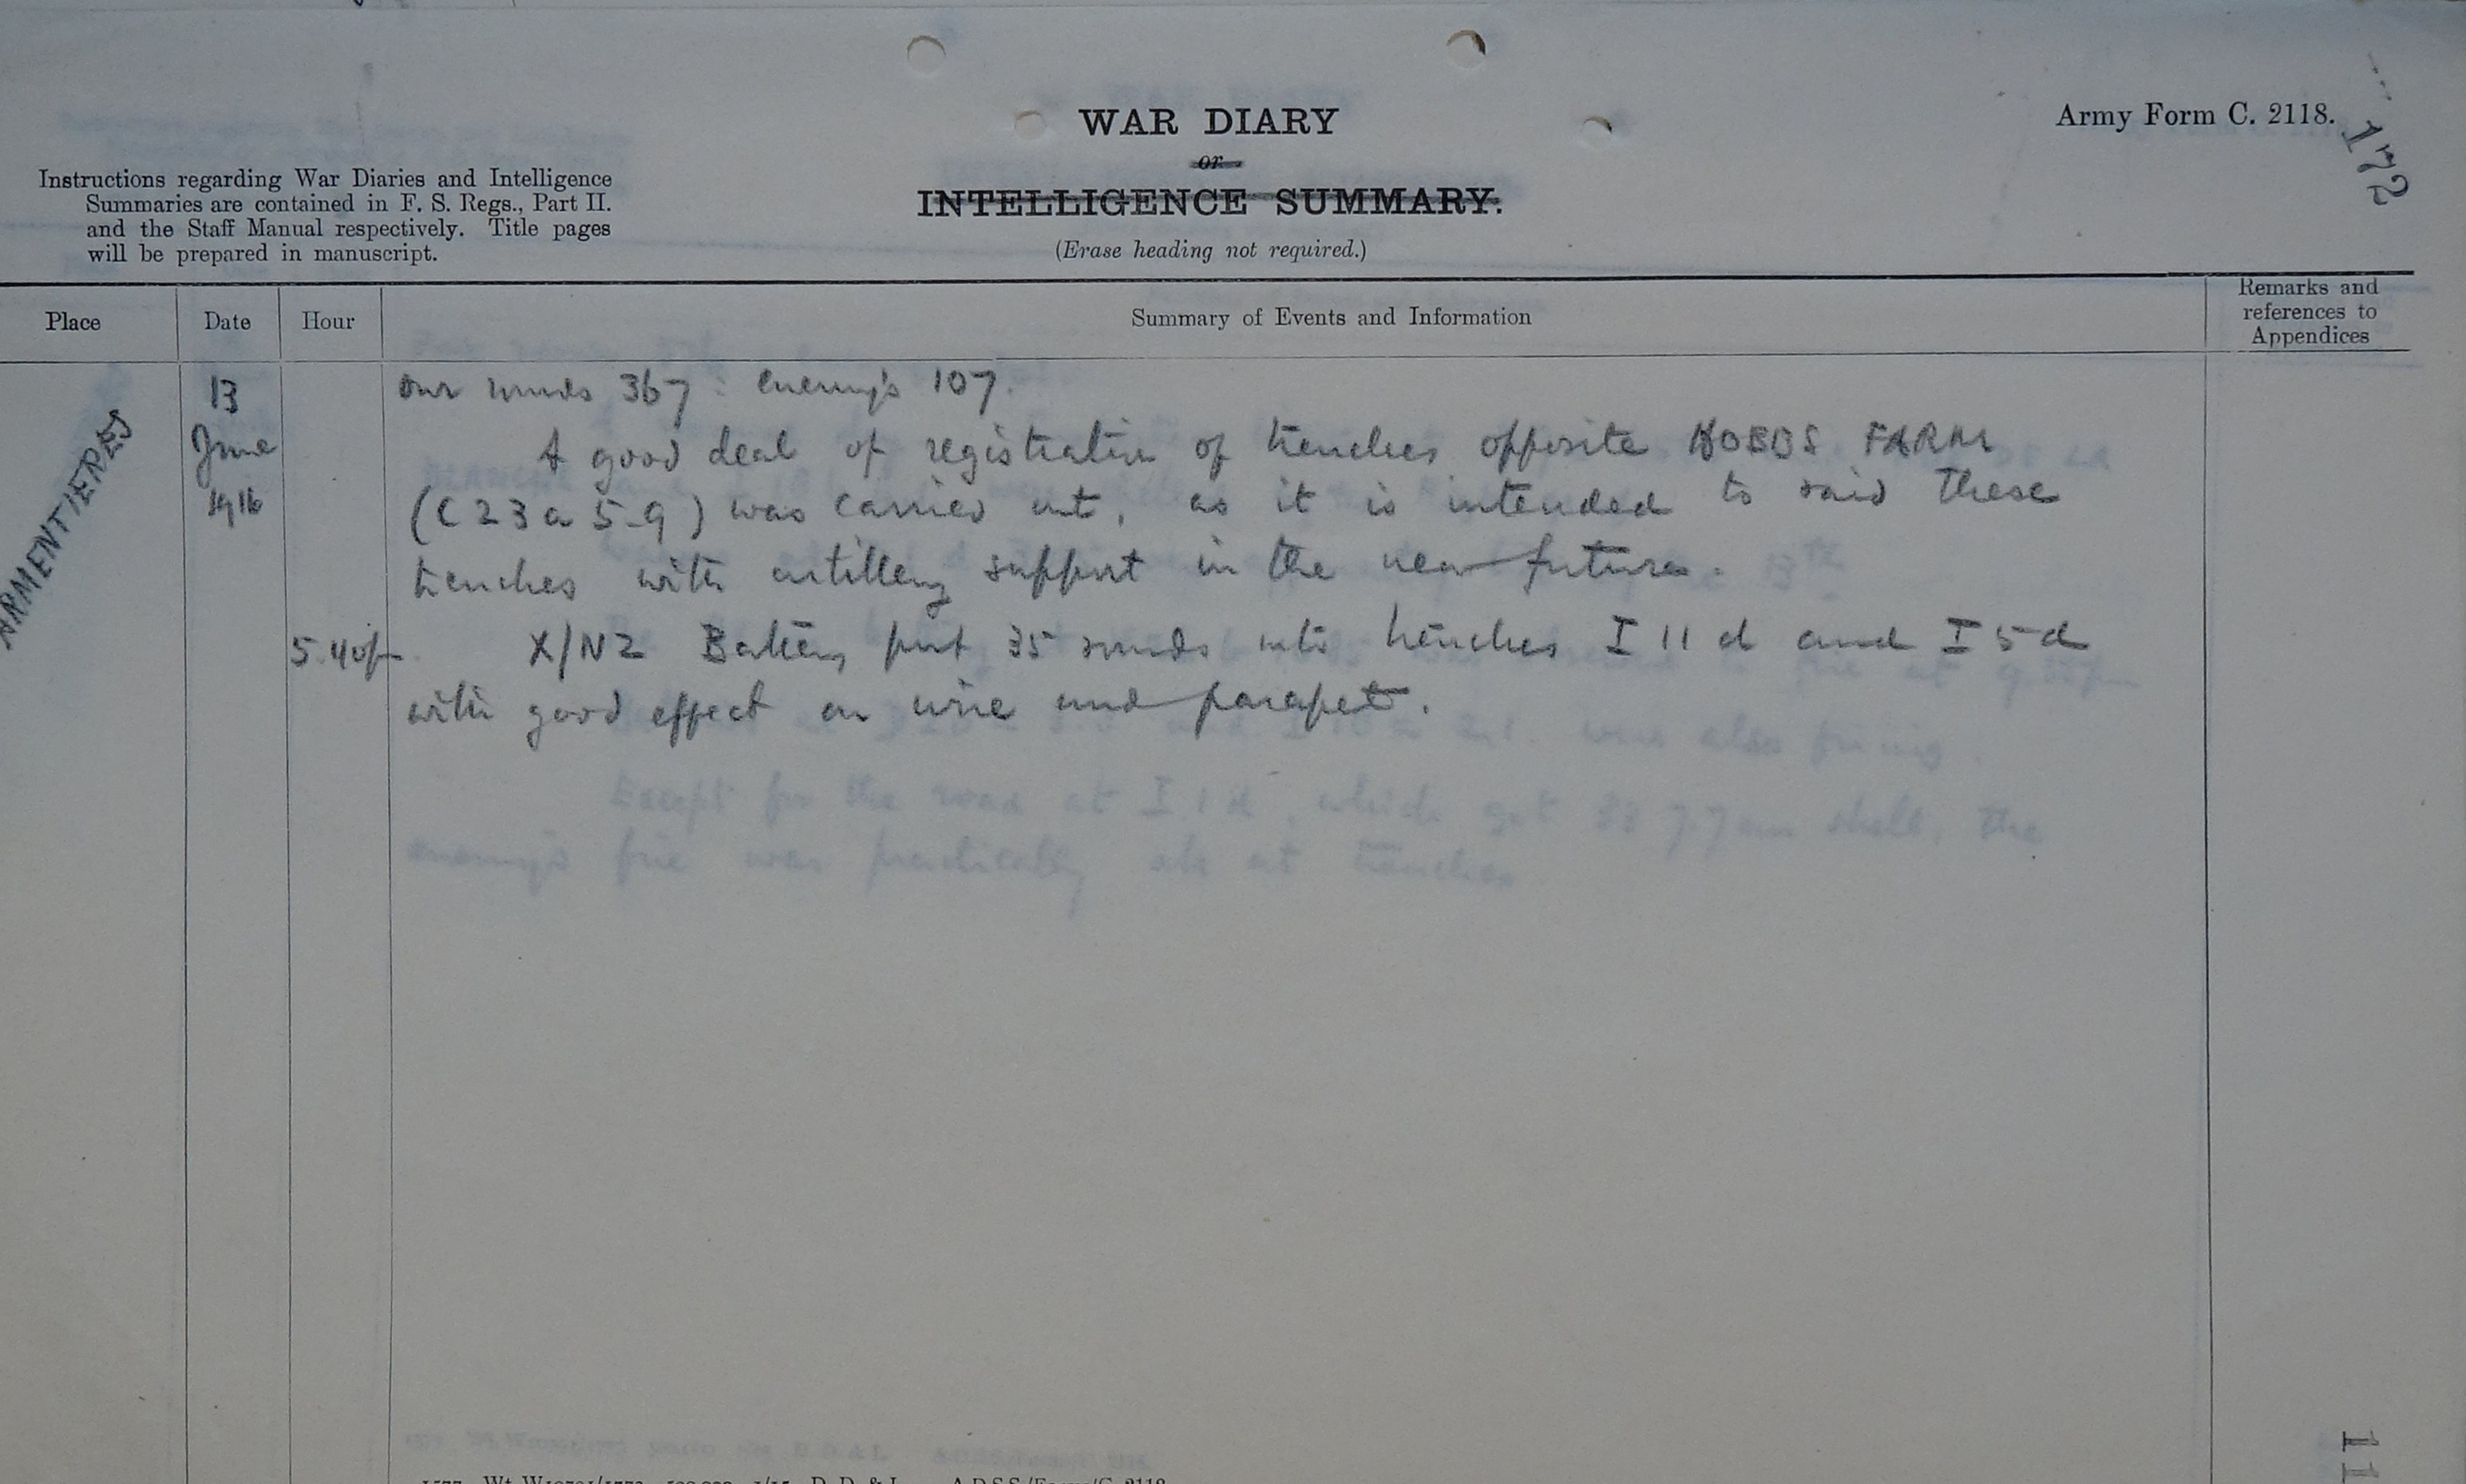 WAR DIARY
or
INTELLIGENCE SUMMARY.
(Erase heading not required.)
Army Form C. 2118.
172
Instructions regarding War Diaries and Intelligence
Summaries are contained in F. S. Regs., Part II.
and the Staff Manual respectively. Title pages
will be prepared in manuscript.
Place
Date
Hour
Summary of Events and Information
Remarks and
references to
Appendices
ARMENTIERES
13
June
1916
Our rounds 367 : enemy's 107.
A good deal of registration of trenches opposite HOBBS FARM
(C 23 a 5-9) was carried out, as it is intended to raid these
trenches with artillery support in the near future.
5.40p
X/NZ Battery put 35 rounds into trenches I 11 d and I 5 d
with good effect on wire and parapet.
Except for the road at I 1 d, which got 77cm shell, the
enemy's fire was practically all at trenches
11